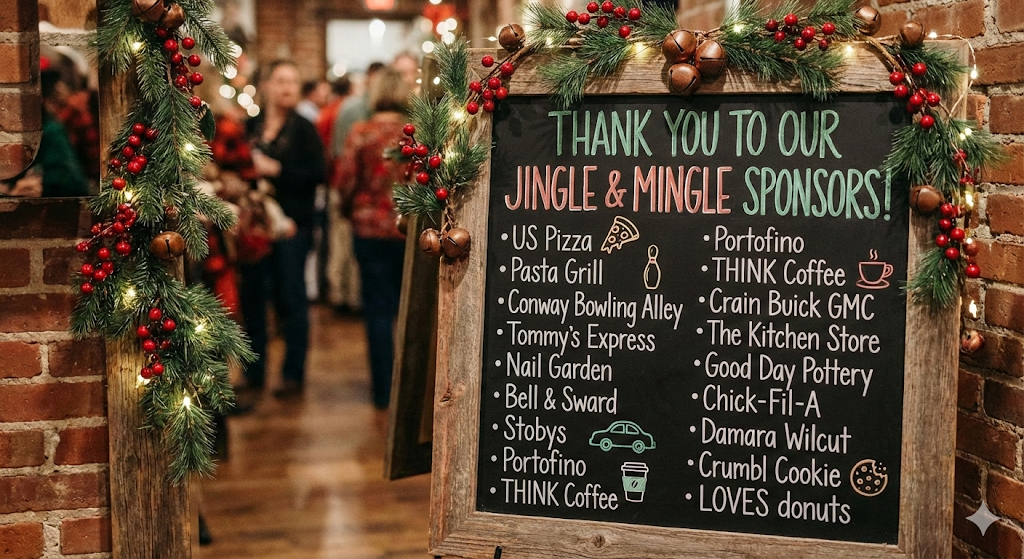 THANK YOU TO OUR
JINGLE & MINGLE SPONSORS!
• US Pizza
• Pasta Grill
• Conway Bowling Alley
• Tommy's Express
• Nail Garden
• Bell & Sward
• Stobys
• Portofino
• THINK Coffee
• Portofino
• THINK Coffee
• Crain Buick GMC
• The Kitchen Store
• Good Day Pottery
• Chick-Fil-A
• Damara Wilcut
• Crumbl Cookie
• LOVES donuts